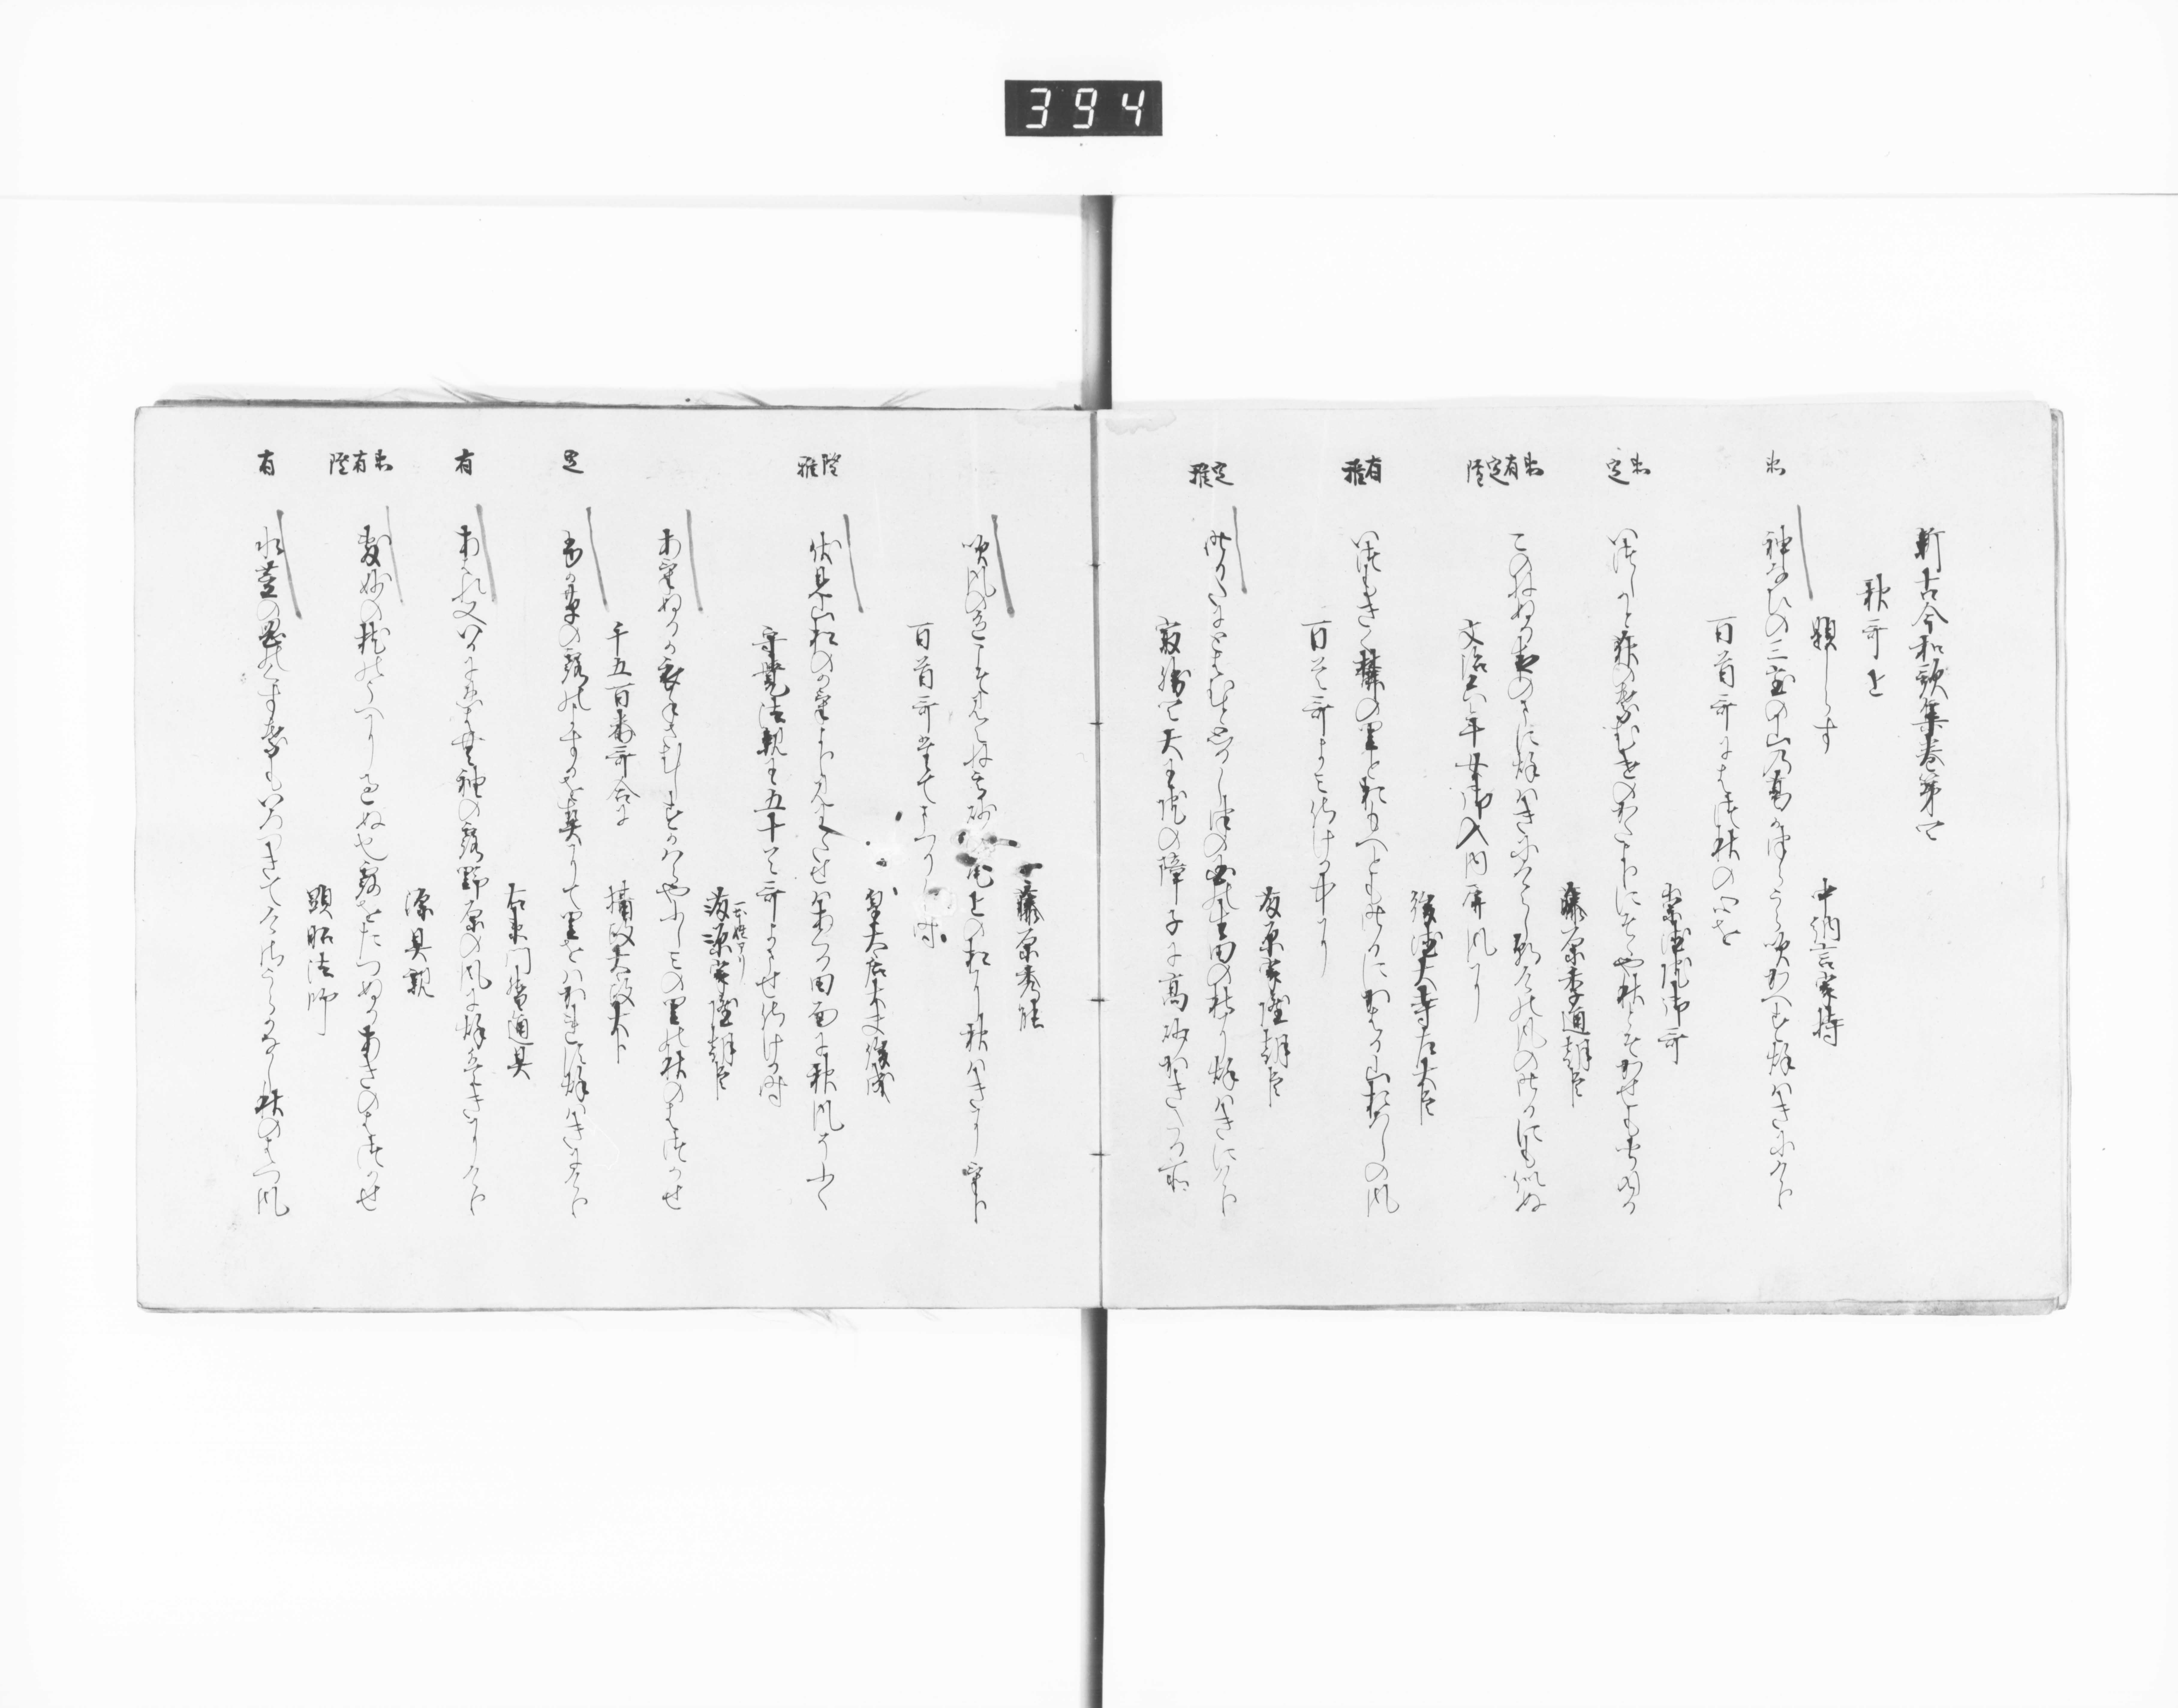 394
新古今和歌集巻第四
秋哥上
題しらす
中納言家持
神なひの三室の山の葛かつらうら吹かへす秋はきにけり
百首哥にはつ秋の心を
崇徳院御哥
いつしかと荻の葉むけのかたよりにそゝや秋とそかせもきこゆる
藤原季通朝臣
このねぬる夜のまに秋はきにけらしあさけの風の昨日にもにぬ
文治六年女御入内屏風に
後徳大寺左大臣
いつもきく麓の里とおもへとも昨日にかはる山おろしの風
百首哥よみ侍ける中に
藤原家隆朝臣
昨日たにとはむとおもひし津の国の生田の杜に秋はきにけり
最勝四天王院の障子に高砂かきたる所
藤原秀能
吹風の色こそ見えね高砂の尾上の松に秋はきにけり
百首哥たてまつりし時
皇太后宮大夫俊成
伏見山松のかけより見わたせはあくる田面に秋風そふく
守覚法親王五十首哥よませ侍ける時
家隆朝臣
あけぬるか衣手さむしすかはらやふしみの里の秋のはつかせ
千五百番哥合に
摂政太政大臣
ふか草の露のよすかを契にて里をはかれす秋はきにけり
右衛門督通具
あはれ又いかにしのはむ袖の露野原の風に秋はきにけり
源具親
敷妙の枕のうへにすきぬ也露をたつぬるあきのはつかせ
顕昭法師
水茎の岡のくす葉もいろつきてけさうらかなし秋のはつ風